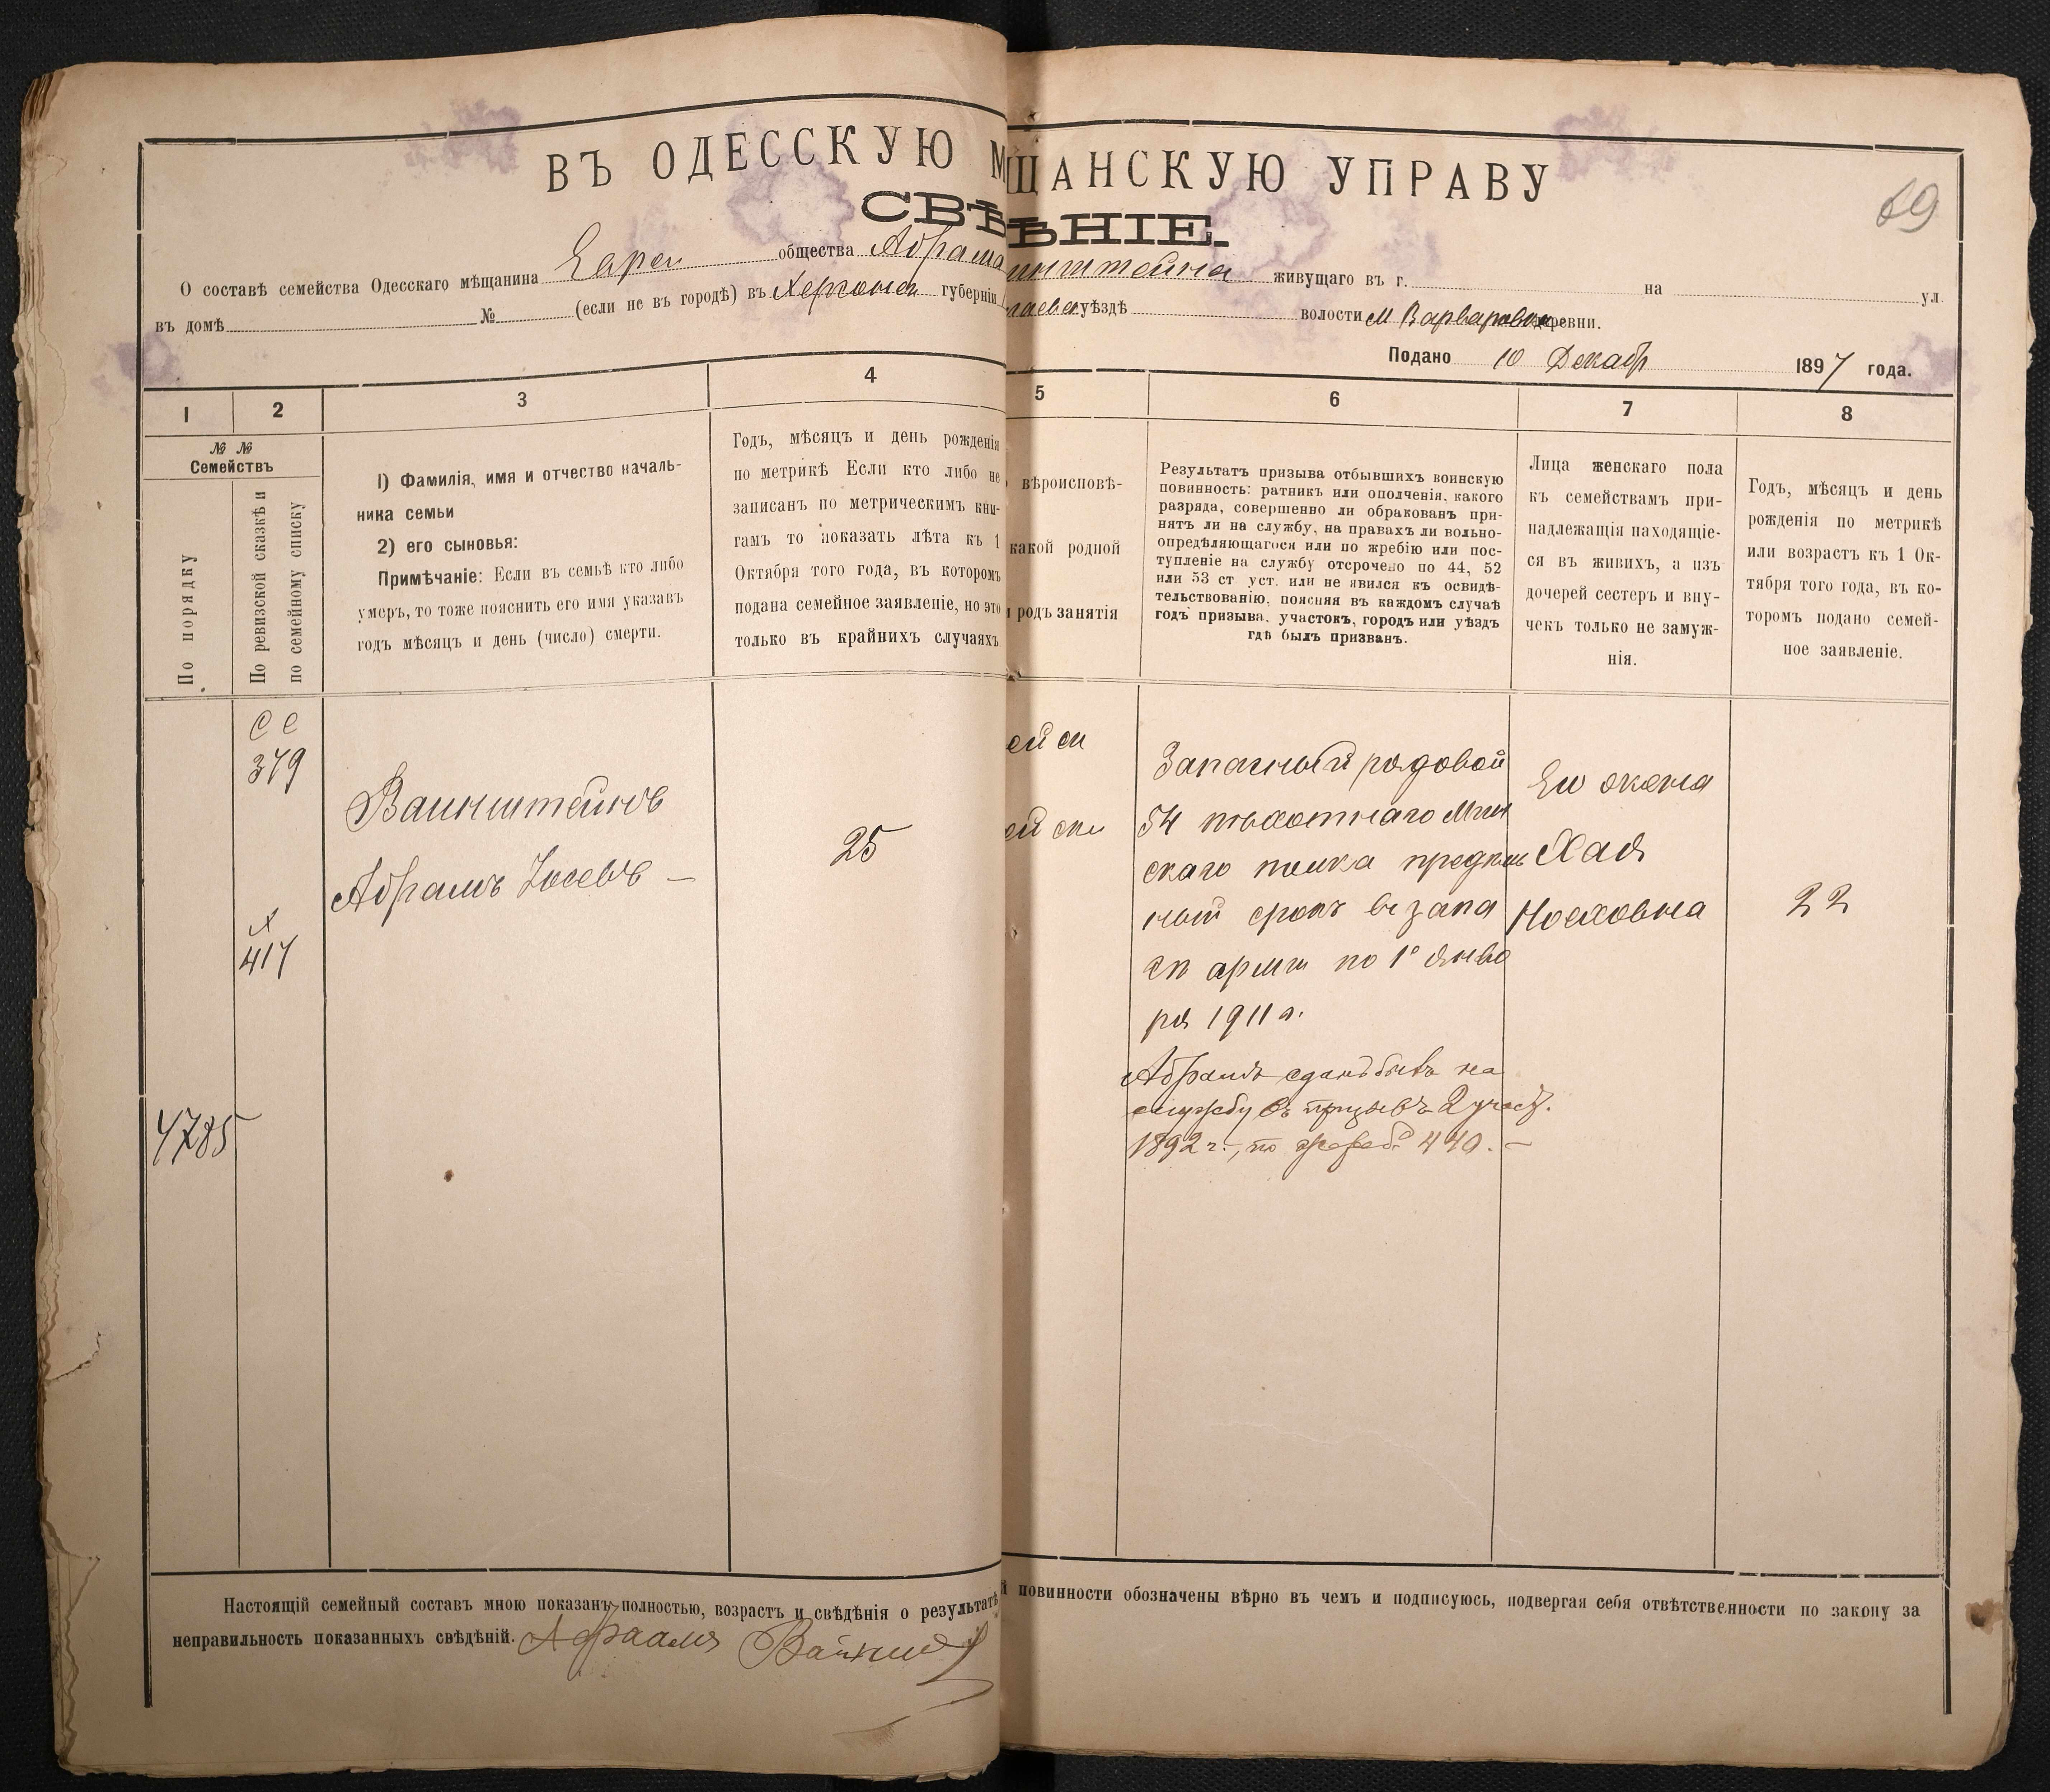 69
ВЪ ОДЕССКУЮ М ЩАНСКУЮ УПРАВУ
СВѢ ѢНІЕ.
О составѣ семейства Одесскаго мѣщанина Евреи общества Абрама инштейна живущаго въ г. на ул.
въ домѣ № (если не въ городѣ) въ Херсонск губерніи лаевск уѣздѣ волости М Варваровки деревни.
Подано 10 Декабр 1897 года.
1 2 3 4 5 6 7 8
№ № Семействъ
По порядку
По ревизской сказкѣ и
по семейному списку
1) Фамилія, имя и отчество началь-
ника семьи
2) его сыновья:
Примѣчаніе: Если въ семьѣ кто либо
умеръ, то тоже пояснить его имя указавъ
годъ мѣсяцъ и день (число) смерти.
Годъ, мѣсяцъ и день рожденія
по метрикѣ Если кто либо не
записанъ по метрическимъ кни-
гамъ то показать лѣта къ 1
Октября того года, въ которомъ
подана семейное заявленіе, но это
только въ крайнихъ случаяхъ
вѣроисповѣ-
какой родной
и родъ занятія
Результатъ призыва отбывшихъ воинскую
повинность: ратникъ или ополченія, какого
разряда, совершенно ли обракованъ при-
нятъ ли на службу, на правахъ ли вольно-
опредѣляющагося или по жребію или пос-
тупленіе на службу отсрочено по 44, 52
или 53 ст уст. или не явился къ освидѣ-
тельствованію, поясняя въ каждомъ случаѣ
годъ призыва, участокъ, городъ или уѣздъ
гдѣ былъ призванъ.
Лица женскаго пола
къ семействамъ при-
надлежащія находящіе-
ся въ живихъ, а изъ
дочерей сестеръ и вну-
чекъ только не замуж-
нія.
Годъ, мѣсяцъ и день
рожденія по метрикѣ
или возрастъ къ 1 Ок-
тября того года, въ ко-
торомъ подано семей-
ное заявленіе.
СС
379
Х
417
4785
Ваинштейнъ
Абрамъ Іосевъ —
25
ей ск
ей ски
Запасный рядовой
54 пѣхотнаго Мин
скаго полка предель
ный срокъ въ запа
сѣ арміи по 1е Янва
ря 1911 г.
Абрамъ сданъ былъ на
службу въ призывъ 2 участ.
1892 г., по жереб. 440. —
Ею жена
Хая
Носховна
22
Настоящій семейный составъ мною показанъ полностью, возрастъ и свѣдѣнія о результатѣ й повинности обозначены вѣрно въ чемъ и подписуюсь, подвергая себя отвѣтственности по закону за
неправильность показанныхъ свѣдѣній. Абраамъ